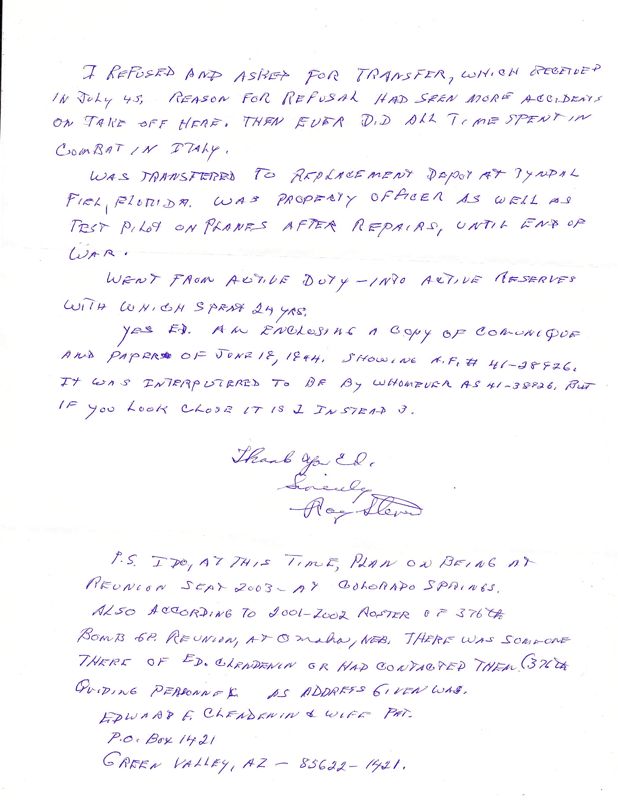 I REFUSED AND ASKED FOR TRANSFER, WHICH RECEIVED
IN JULY 45, REASON FOR REFUSAL HAD SEEN MORE ACCIDENTS
ON TAKE OFF HERE. THEN EVER DID ALL TIME SPENT IN
COMBAT IN ITALY.
WAS TRANSFERED TO REPLACEMENT DEPOT AT TYNDAL
FIEL, FLORIDA. WAS PROPERTY OFFICER AS WELL AS
TEST PILOT ON PLANES AFTER REPAIRS, UNTIL END OF
WAR.
WENT FROM ACTIVE DUTY - INTO ACTIVE RESERVES
WITH WHICH SPENT 24 YRS.
YES ED. AM ENCLOSING A COPY OF COMUNIQUE
AND PAPERS OF JUNE 18, 1944. SHOWING A.F.# 41-28926.
IT WAS INTERPUTERED TO BE BY WHOMEVER AS 41-38926. BUT
IF YOU LOOK CLOSE IT IS 2 INSTEAD 3.
Thank you Ed.
Sincerely
Ray
P.S. I DO, AT THIS TIME, PLAN ON BEING AT
REUNION SEPT 2003 - AT COLORADO SPRINGS.
ALSO ACCORDING TO 2001-2002 ROSTER OF 376th
BOMB GP. REUNION, AT OMAHA, NEB. THERE WAS SOMEONE
THERE OF ED. CLENDENIN OR HAD CONTACTED THEM (376th
GUIDING PERSONNEL AS ADDRESS GIVEN WAS.
EDWARD F. CLENDENIN & WIFE PAT.
P.O. BOX 1421
GREEN VALLEY, AZ - 85622-1421.